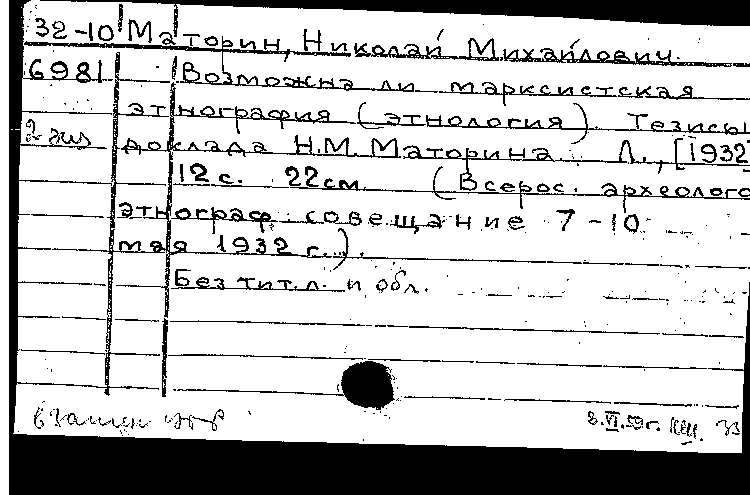 32-10 Маторин, Николай Михайлович.
6981 Возможна ли марксистская
этнография (этнология). Тезисы
2 экз доклада Н.М. Маторина. Л., [1932]
12 с. 22 см. (Всерос. археолого
этнограф. совещание 7-10
мая 1932 г.).
Без тит. л. и обл.
взамен
3.VI.59г.